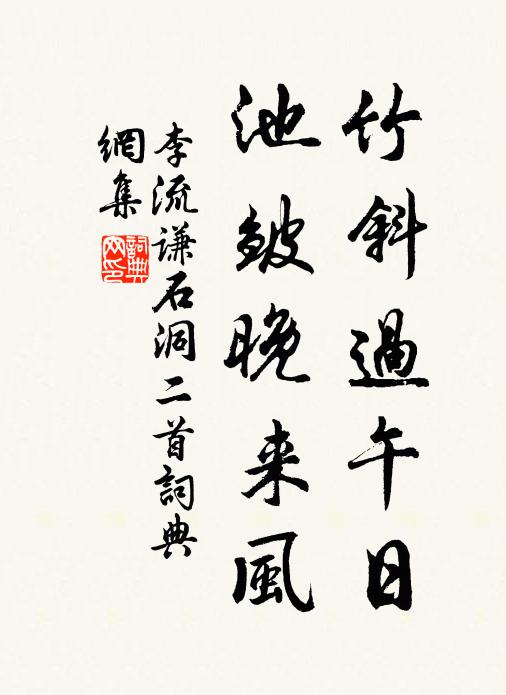 竹斜過午日
池皱晚来風
李流谦石洞二首詞典
網集
詞典
网印